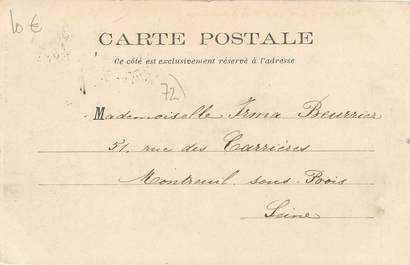 10 €
CARTE POSTALE
Ce côté est exclusivement réservé à l'adresse
72)
Mademoiselle Irma Beurrier
51, rue des Carrières
Montreuil sous-Bois
Seine